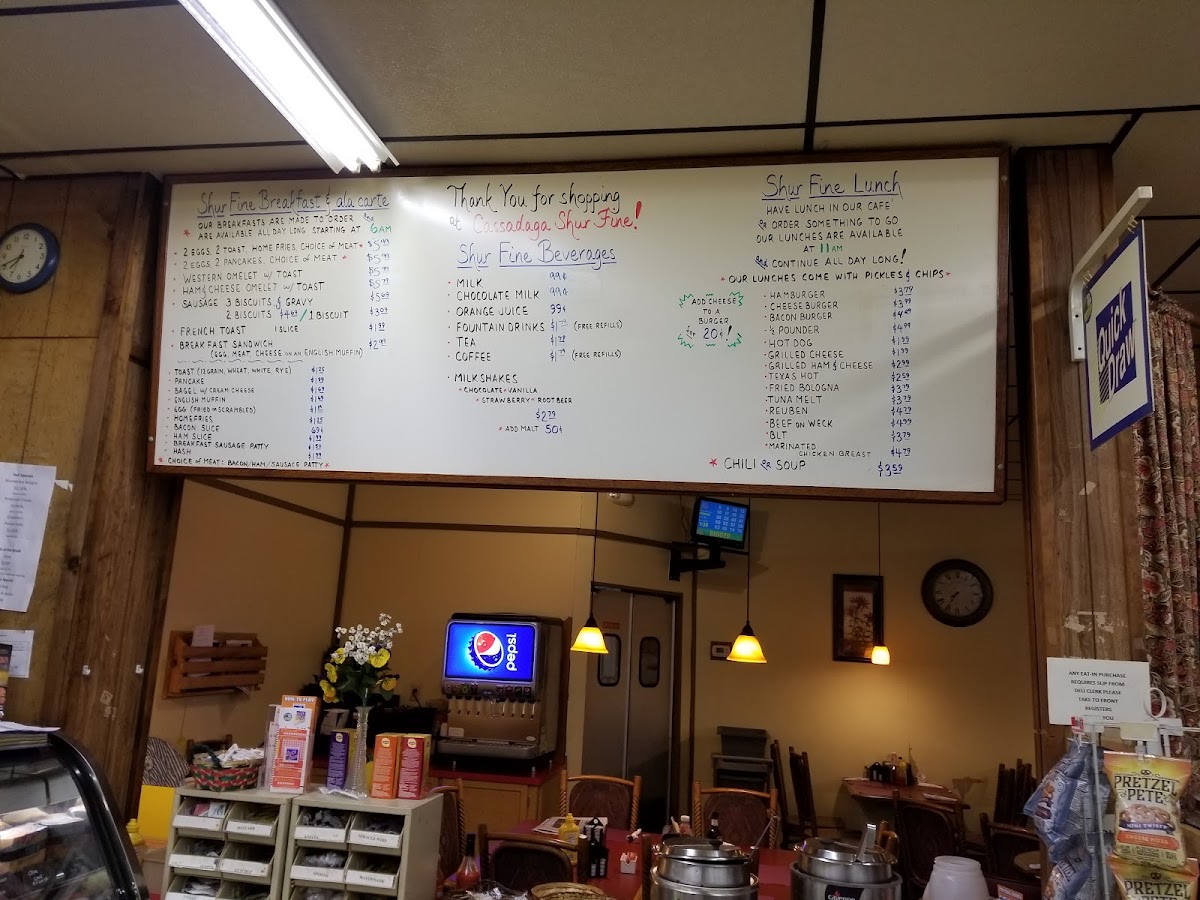 Shur Fine Breakfast & ala carte
OUR BREAKFASTS ARE MADE TO ORDER and
* ARE AVAILABLE ALL DAY LONG STARTING AT 6AM
• 2 EGGS, 2 TOAST, HOMEFRIES, CHOICE of MEAT*
• 2 EGGS, 2 PANCAKES, CHOICE of MEAT*
• WESTERN OMELET w/ TOAST
• HAM & CHEESE OMELET w/ TOAST
• SAUSAGE 3 BISCUITS & GRAVY
2 BISCUITS / 1 BISCUIT
• FRENCH TOAST 1 SLICE
• BREAKFAST SANDWICH
(EGG, MEAT, CHEESE ON AN ENGLISH MUFFIN)
• TOAST (12 GRAIN, WHEAT, WHITE, RYE)
• PANCAKE
• BAGEL w/ CREAM CHEESE
• ENGLISH MUFFIN
• EGG (FRIED OR SCRAMBLED)
• HOMEFRIES
• BACON SLICE 69¢
• HAM SLICE
• BREAKFAST SAUSAGE PATTY
• HASH
* CHOICE of MEAT: BACON/HAM/SAUSAGE PATTY *
Thank You for shopping
at Cassadaga Shur Fine!
Shur Fine Beverages
• MILK 99¢
• CHOCOLATE MILK 99¢
• ORANGE JUICE 99¢
• FOUNTAIN DRINKS (FREE REFILLS)
• TEA
• COFFEE (FREE REFILLS)
• MILKSHAKES
* CHOCOLATE * VANILLA
* STRAWBERRY * ROOTBEER
$2.79
* ADD MALT 50¢
Shur Fine Lunch
HAVE LUNCH IN OUR CAFE
or ORDER SOMETHING TO GO
OUR LUNCHES ARE AVAILABLE
AT 11AM
and CONTINUE ALL DAY LONG!
* OUR LUNCHES COME WITH PICKLES & CHIPS *
ADD CHEESE
TO A
BURGER
for 20¢!
• HAMBURGER
• CHEESE BURGER
• BACON BURGER
• ½ POUNDER $4.99
• HOT DOG $1.99
• GRILLED CHEESE $1.99
• GRILLED HAM & CHEESE $2.99
• TEXAS HOT $2.59
• FRIED BOLOGNA $3.79
• TUNA MELT $3.79
• REUBEN $4.79
• BEEF ON WECK $4.99
• BLT $3.79
• MARINATED
CHICKEN BREAST $4.79
* CHILI or SOUP $3.59
Quick
Draw
pepsi
ANY EAT-IN PURCHASE
REQUIRES SLIP FROM
DELI CLERK PLEASE
TAKE TO FRONT
REGISTERS
YOU
PRETZEL
PETE
PRETZEL
PETE